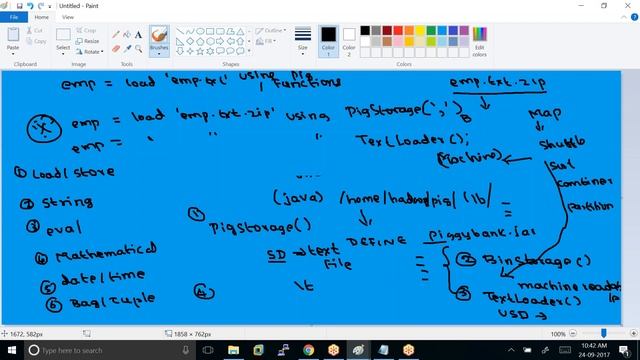 Untitled - Paint
File
Home
View
Paste
Clipboard
Select
Crop
Resize
Rotate
Image
Tools
Brushes
Shapes
Outline
Fill
Size
Color 1
Color 2
Colors
Edit colors
emp = load 'emp.txt' using pig functions
emp.txt.zip
emp = load 'emp.txt.zip' using PigStorage(',')
emp = " " " TextLoader();
Map
(Machine)
① Load/store
② String
③ eval
④ Mathematical
⑤ date/time
⑥ Bag/Tuple
combiner
partition
(java) /home/hadoop/pig/lib/
① PigStorage()
DEFINE piggybank.jar
SD → text file
② BinStorage()
machine readable
③ TextLoader()
USD →
④ \t
1672, 582px
1858 × 762px
100%
Type here to search
10:42 AM
24-09-2017